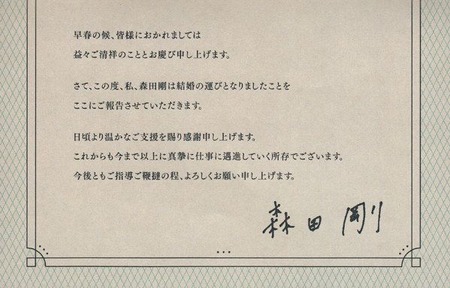 早春の候、皆様におかれましては
益々ご清祥のこととお慶び申し上げます。
さて、この度、私、森田剛は結婚の運びとなりましたことを
ここにご報告させていただきます。
日頃より温かなご支援を賜り感謝申し上げます。
これからも今まで以上に真摯に仕事に邁進していく所存でございます。
今後ともご指導ご鞭撻の程、よろしくお願い申し上げます。
森田剛